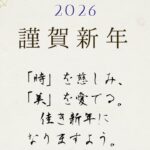 2026
謹賀新年
「時」を慈しみ、
「美」を愛でる。
佳き新年に
なりますよう。